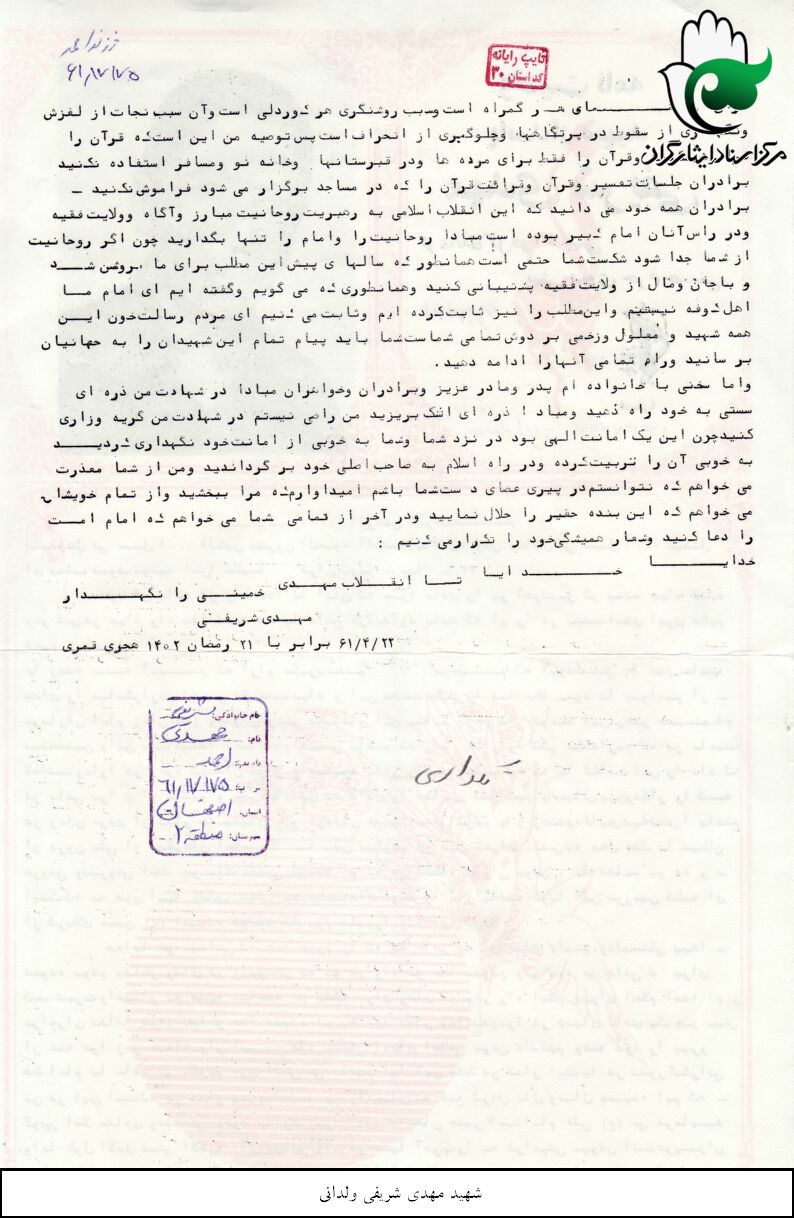 فرزند احمد
۶۱٫۱۷٫۱۷۵
تایپ رایانه
کد استان ۳۰
مرکز اسناد ایثارگران
نمای هر گمراه است وسبب روشنگری هر کوردلی است وآن سبب نجات از لغزش
از سقوط در پرتگاهها وجلوگیری از انحراف است پس توصیه من این است که قرآن را
وقرآن را فقط برای مرده ها ودر قبرستانها وخانه نو ومسافر استفاده نکنید
برادران جلسات تفسیر وقرآن وقرائت قرآن را که در مساجد برگزار می شود فراموش نکنید ـ
برادران همه خود می دانید که این انقلاب اسلامی به رهبریت روحانیت مبارز وآگاه وولایت فقیه
ودر راس آنان امام کبیر بوده است مبادا روحانیت را وامام را تنها بگذارید چون اگر روحانیت
از شما جدا شود شکست شما حتمی است همانطور که سالها ی پیش این مطلب برای ما روشن شد
و باجان ومال از ولایت فقیه پشتیبانی کنید وهمانطوری که می گویم وگفته ایم ای امام ما
اهل کوفه نیستیم واین مطلب را نیز ثابت کرده ایم وثابت می کنیم ای مردم رسالت خون این
همه شهید و معلول وزخمی بر دوش تمامی شماست شما باید پیام تمام این شهیدان را به جهانیان
بر سانید وراه تمامی آنهارا ادامه دهید .
واما سخنی با خانواده ام پدر ومادر عزیز وبرادران وخواهران مبادا در شهادت من ذره ای
سستی به خود راه دهید ومباد ا ذره ای اشک بریزید من راضی نیستم در شهادت من گریه وزاری
کنید چون این یک امانت الهی بود در نزد شما وشما به خوبی از امانت خود نگهداری کردید
به خوبی آن را تربیت کرده ودر راه اسلام به صاحب اصلی خود بر گرداندید ومن از شما معذرت
می خواهم که نتوانستم در پیری عصای د ست شما باشم امیداوارم که مرا ببخشید واز تمام خویشان
می خواهم که این بنده حقیر را حلال نمایید ودر آخر از تمامی شما می خواهم که امام امت
را دعا کنید وشعار همیشگی خود را تکرارمی کنیم :
خدایا خدایا تا انقلاب مهدی خمینی را نگهدار
مهدی شریفی
۶۱/۴/۲۲ برابر با ۲۱ رمضان ۱۴۰۲ هجری قمری
نام خانوادگی: شریفی
نام: مهدی
نام پدر: احمد
۶۱٫۱۷٫۱۷۵
استان: اصفهان
شهرستان: منطقه ۲
شهید مهدی شریفی ولدانی